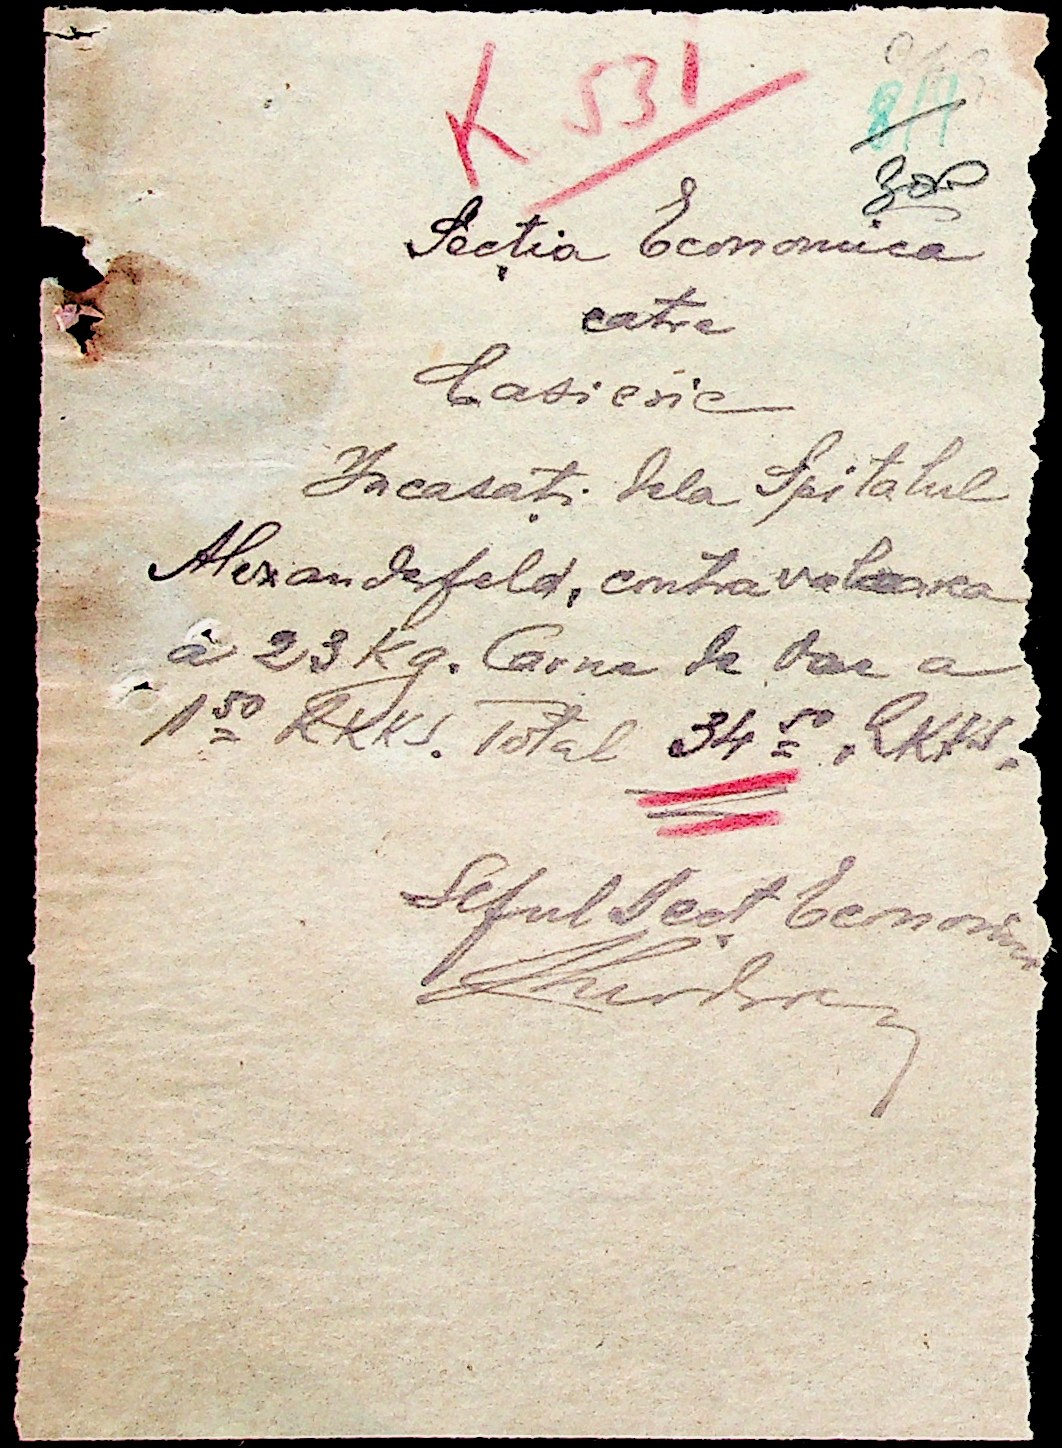 K 531
8/1
Secția Economica
catre
Casierie
Incasați dela Spitalul
Alexanderfeld, contravaloarea
a 23 Kg. Carne de vac a
1⁵⁰ RKKS. Total 34⁵⁰ RKKS.
Seful Secț Economic